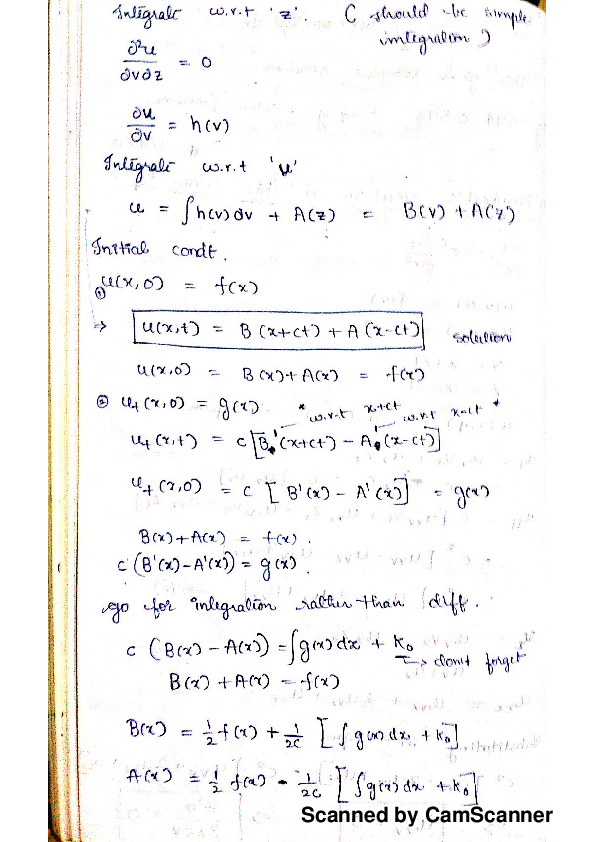 Integrate w.r.t 'z'. ( should be simple
integration )
∂²u/∂v∂z = 0
∂u/∂v = h(v)
Integrate w.r.t 'v'
u = ∫h(v)∂v + A(z) = B(v) + A(z)
Initial condt.
① u(x,0) = f(x)
→ u(x,t) = B(x+ct) + A(x-ct) solution
u(x,0) = B(x) + A(x) = f(x)
② u_t(x,0) = g(x) * w.r.t x+ct w.r.t x-ct *
u_t(x,t) = c[B'(x+ct) - A'(x-ct)]
u_t(x,0) = c [B'(x) - A'(x)] = g(x)
B(x) + A(x) = f(x).
c(B'(x) - A'(x)) = g(x).
go for integration rather than diff.
c (B(x) - A(x)) = ∫g(x) dx + K₀
→ don't forget
B(x) + A(x) = f(x)
B(x) = 1/2 f(x) + 1/2c [∫g(x) dx + K₀]
A(x) = 1/2 f(x) - 1/2c [∫g(x) dx + K₀]
Scanned by CamScanner